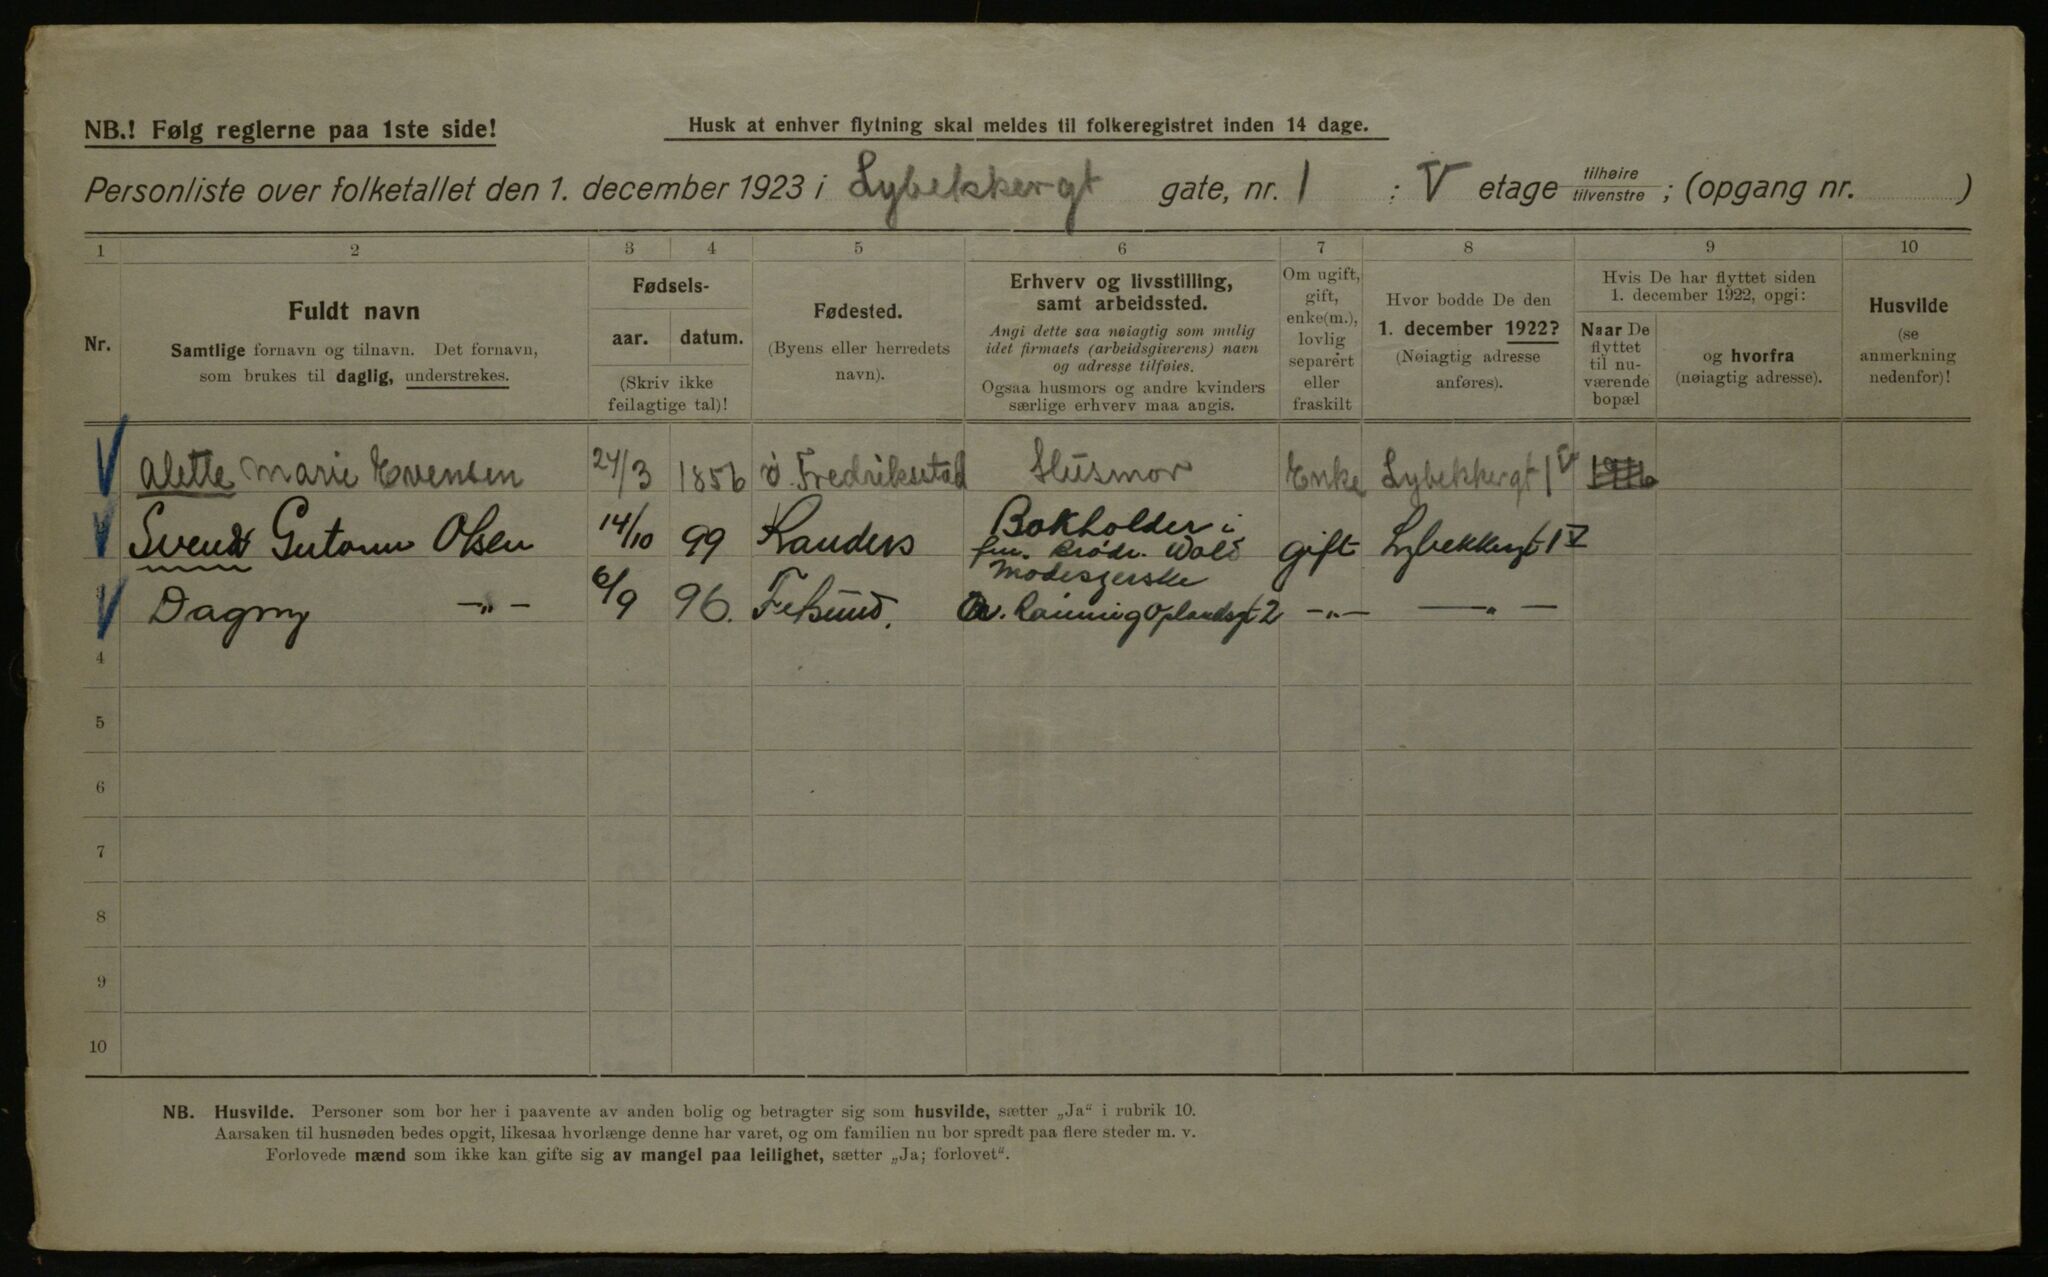 NB.! Følg reglerne paa 1ste side!
Husk at enhver flytning skal meldes til folkeregistret inden 14 dage.
Personliste over folketallet den 1. december 1923 i Lybekkergt gate, nr. 1 : V etage tilhøire tilvenstre ; (opgang nr. )
1 2 3 4 5 6 7 8 9 10
Nr.
Fuldt navn
Samtlige fornavn og tilnavn. Det fornavn,
som brukes til daglig, understrekes.
Fødsels-
aar. datum.
(Skriv ikke
feilagtige tal)!
Fødested.
(Byens eller herredets
navn).
Erhverv og livsstilling,
samt arbeidssted.
Angi dette saa nøiagtig som mulig
idet firmaets (arbeidsgiverens) navn
og adresse tilføies.
Ogsaa husmors og andre kvinders
særlige erhverv maa angis.
Om ugift,
gift,
enke(m.),
lovlig
separert
eller
fraskilt
Hvor bodde De den
1. december 1922?
(Nøiagtig adresse
anføres).
Hvis De har flyttet siden
1. december 1922, opgi:
Naar De
flyttet
til nu-
værende
bopæl
og hvorfra
(nøiagtig adresse).
Husvilde
(se
anmerkning
nedenfor)!
Alette Marie Evensen 27/3 1856 ö. Fredrikstad Husmor Enke Lybekkergt 1 V
Svend Olsen 14/10 99 Randers Bokholder i
fm. Brødr. gift Lybekkergt 1 V
Dagmy -"- 6/9 96. Modesyerske
Oplandsgt 2 -"- -"-
4
5
6
7
8
9
10
NB. Husvilde. Personer som bor her i paavente av anden bolig og betragter sig som husvilde, sætter „Ja“ i rubrik 10.
Aarsaken til husnøden bedes opgit, likesaa hvorlænge denne har varet, og om familien nu bor spredt paa flere steder m. v.
Forlovede mænd som ikke kan gifte sig av mangel paa leilighet, sætter „Ja; forlovet“.